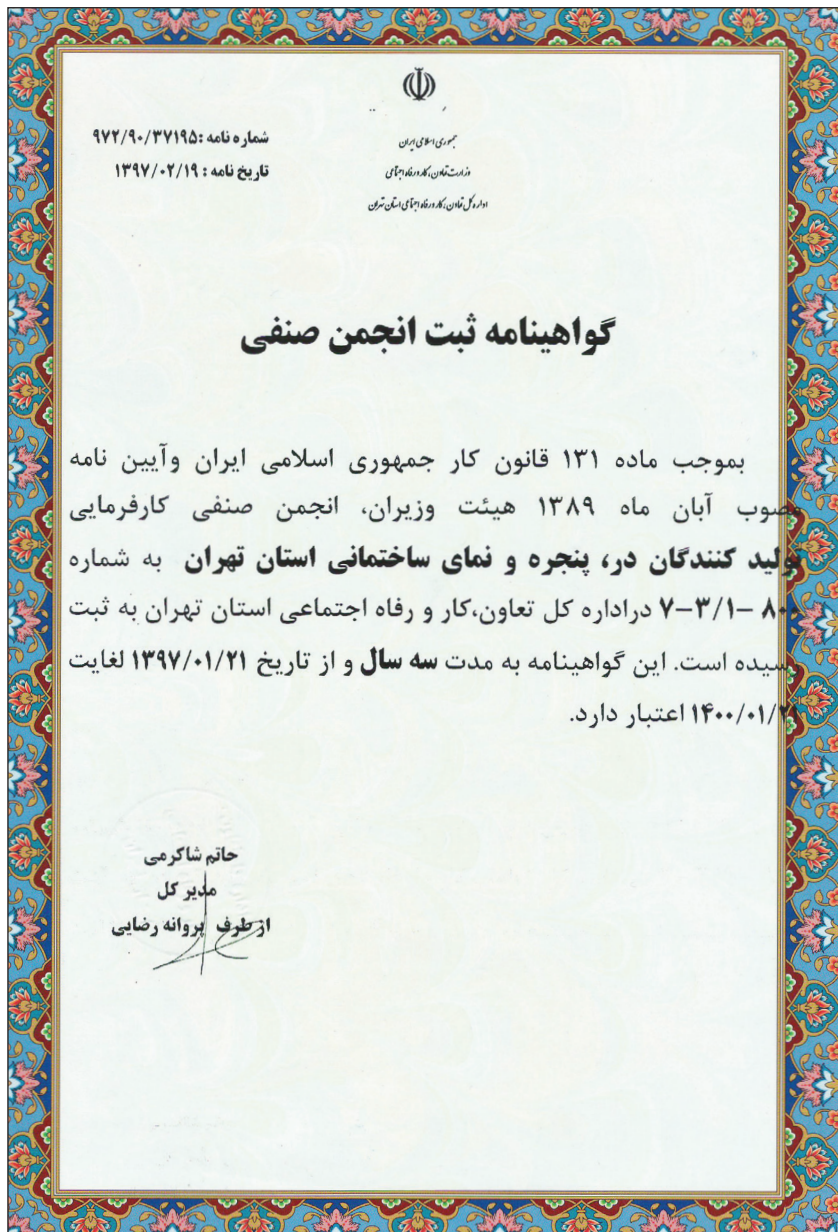 جمهوری اسلامی ایران
وزارت تعاون، کار و رفاه اجتماعی
اداره کل تعاون، کار و رفاه اجتماعی استان تهران
شماره نامه :۹۷۲/۹۰/۳۷۱۹۵
تاریخ نامه : ۱۳۹۷/۰۲/۱۹
گواهینامه ثبت انجمن صنفی
بموجب ماده ۱۳۱ قانون کار جمهوری اسلامی ایران وآیین نامه
مصوب آبان ماه ۱۳۸۹ هیئت وزیران، انجمن صنفی کارفرمایی
تولید کنندگان در، پنجره و نمای ساختمانی استان تهران به شماره
۸۰۰ –۷–۳/۱ دراداره کل تعاون،کار و رفاه اجتماعی استان تهران به ثبت
رسیده است. این گواهینامه به مدت سه سال و از تاریخ ۱۳۹۷/۰۱/۲۱ لغایت
۱۴۰۰/۰۱/۲۱ اعتبار دارد.
حاتم شاکرمی
مدیر کل
از طرف پروانه رضایی